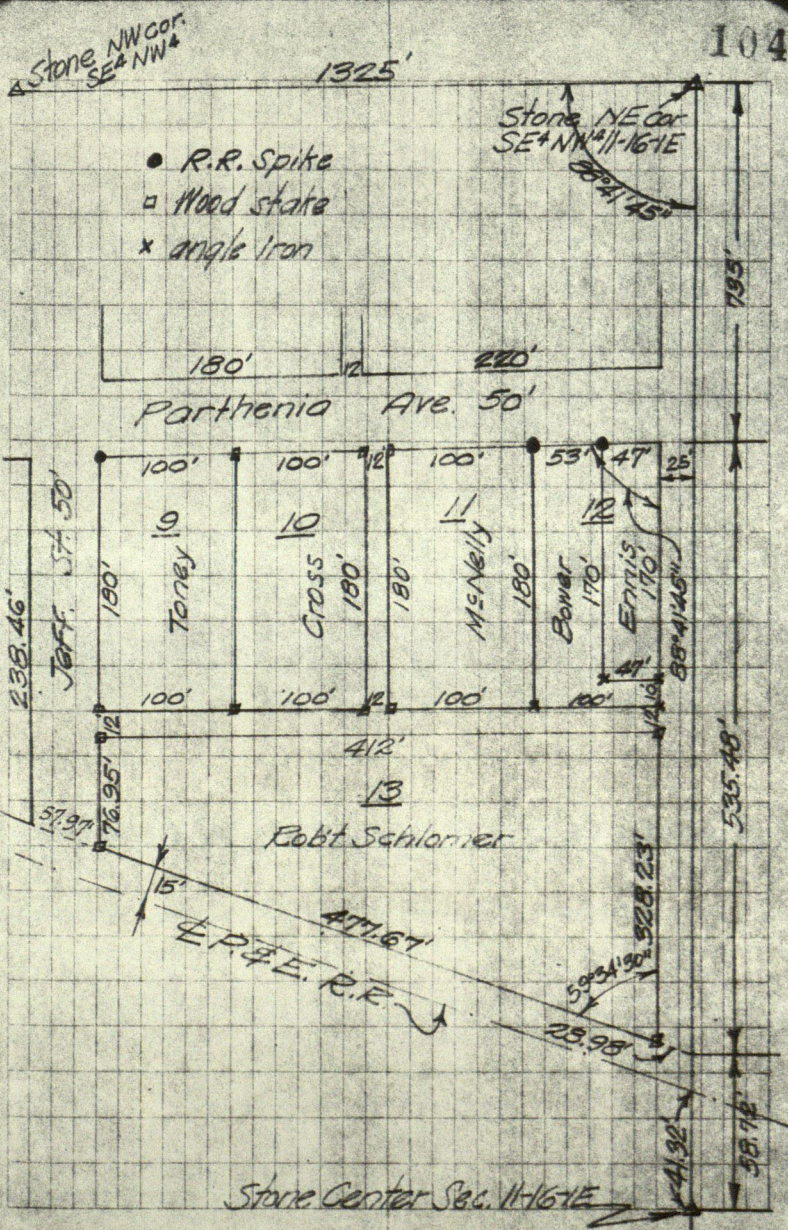 104
Stone NW cor.
SE⁴ NW⁴
1325'
Stone NE cor
SE⁴ NW⁴ 11-16-1E
88°41'45"
R.R. Spike
Wood stake
angle iron
795'
180'
12
220'
Parthenia Ave. 50'
100'
100'
12'
100'
53'
47'
25'
Jeff. St. 50'
238.46'
180'
9
Toney
10
Cross
180'
180'
11
McNelly
180'
Bower
170'
12
Ennis
170'
88°41'45"
47'
10'
100'
100'
12
100'
100'
12
12
412'
535.48'
13
Rob't Schlomer
76.95'
57.97'
15'
477.67'
328.23'
59°34'30"
℄ P. & E. R.R.
28.98'
41.32'
58.72'
Stone Center Sec. 11-16-1E